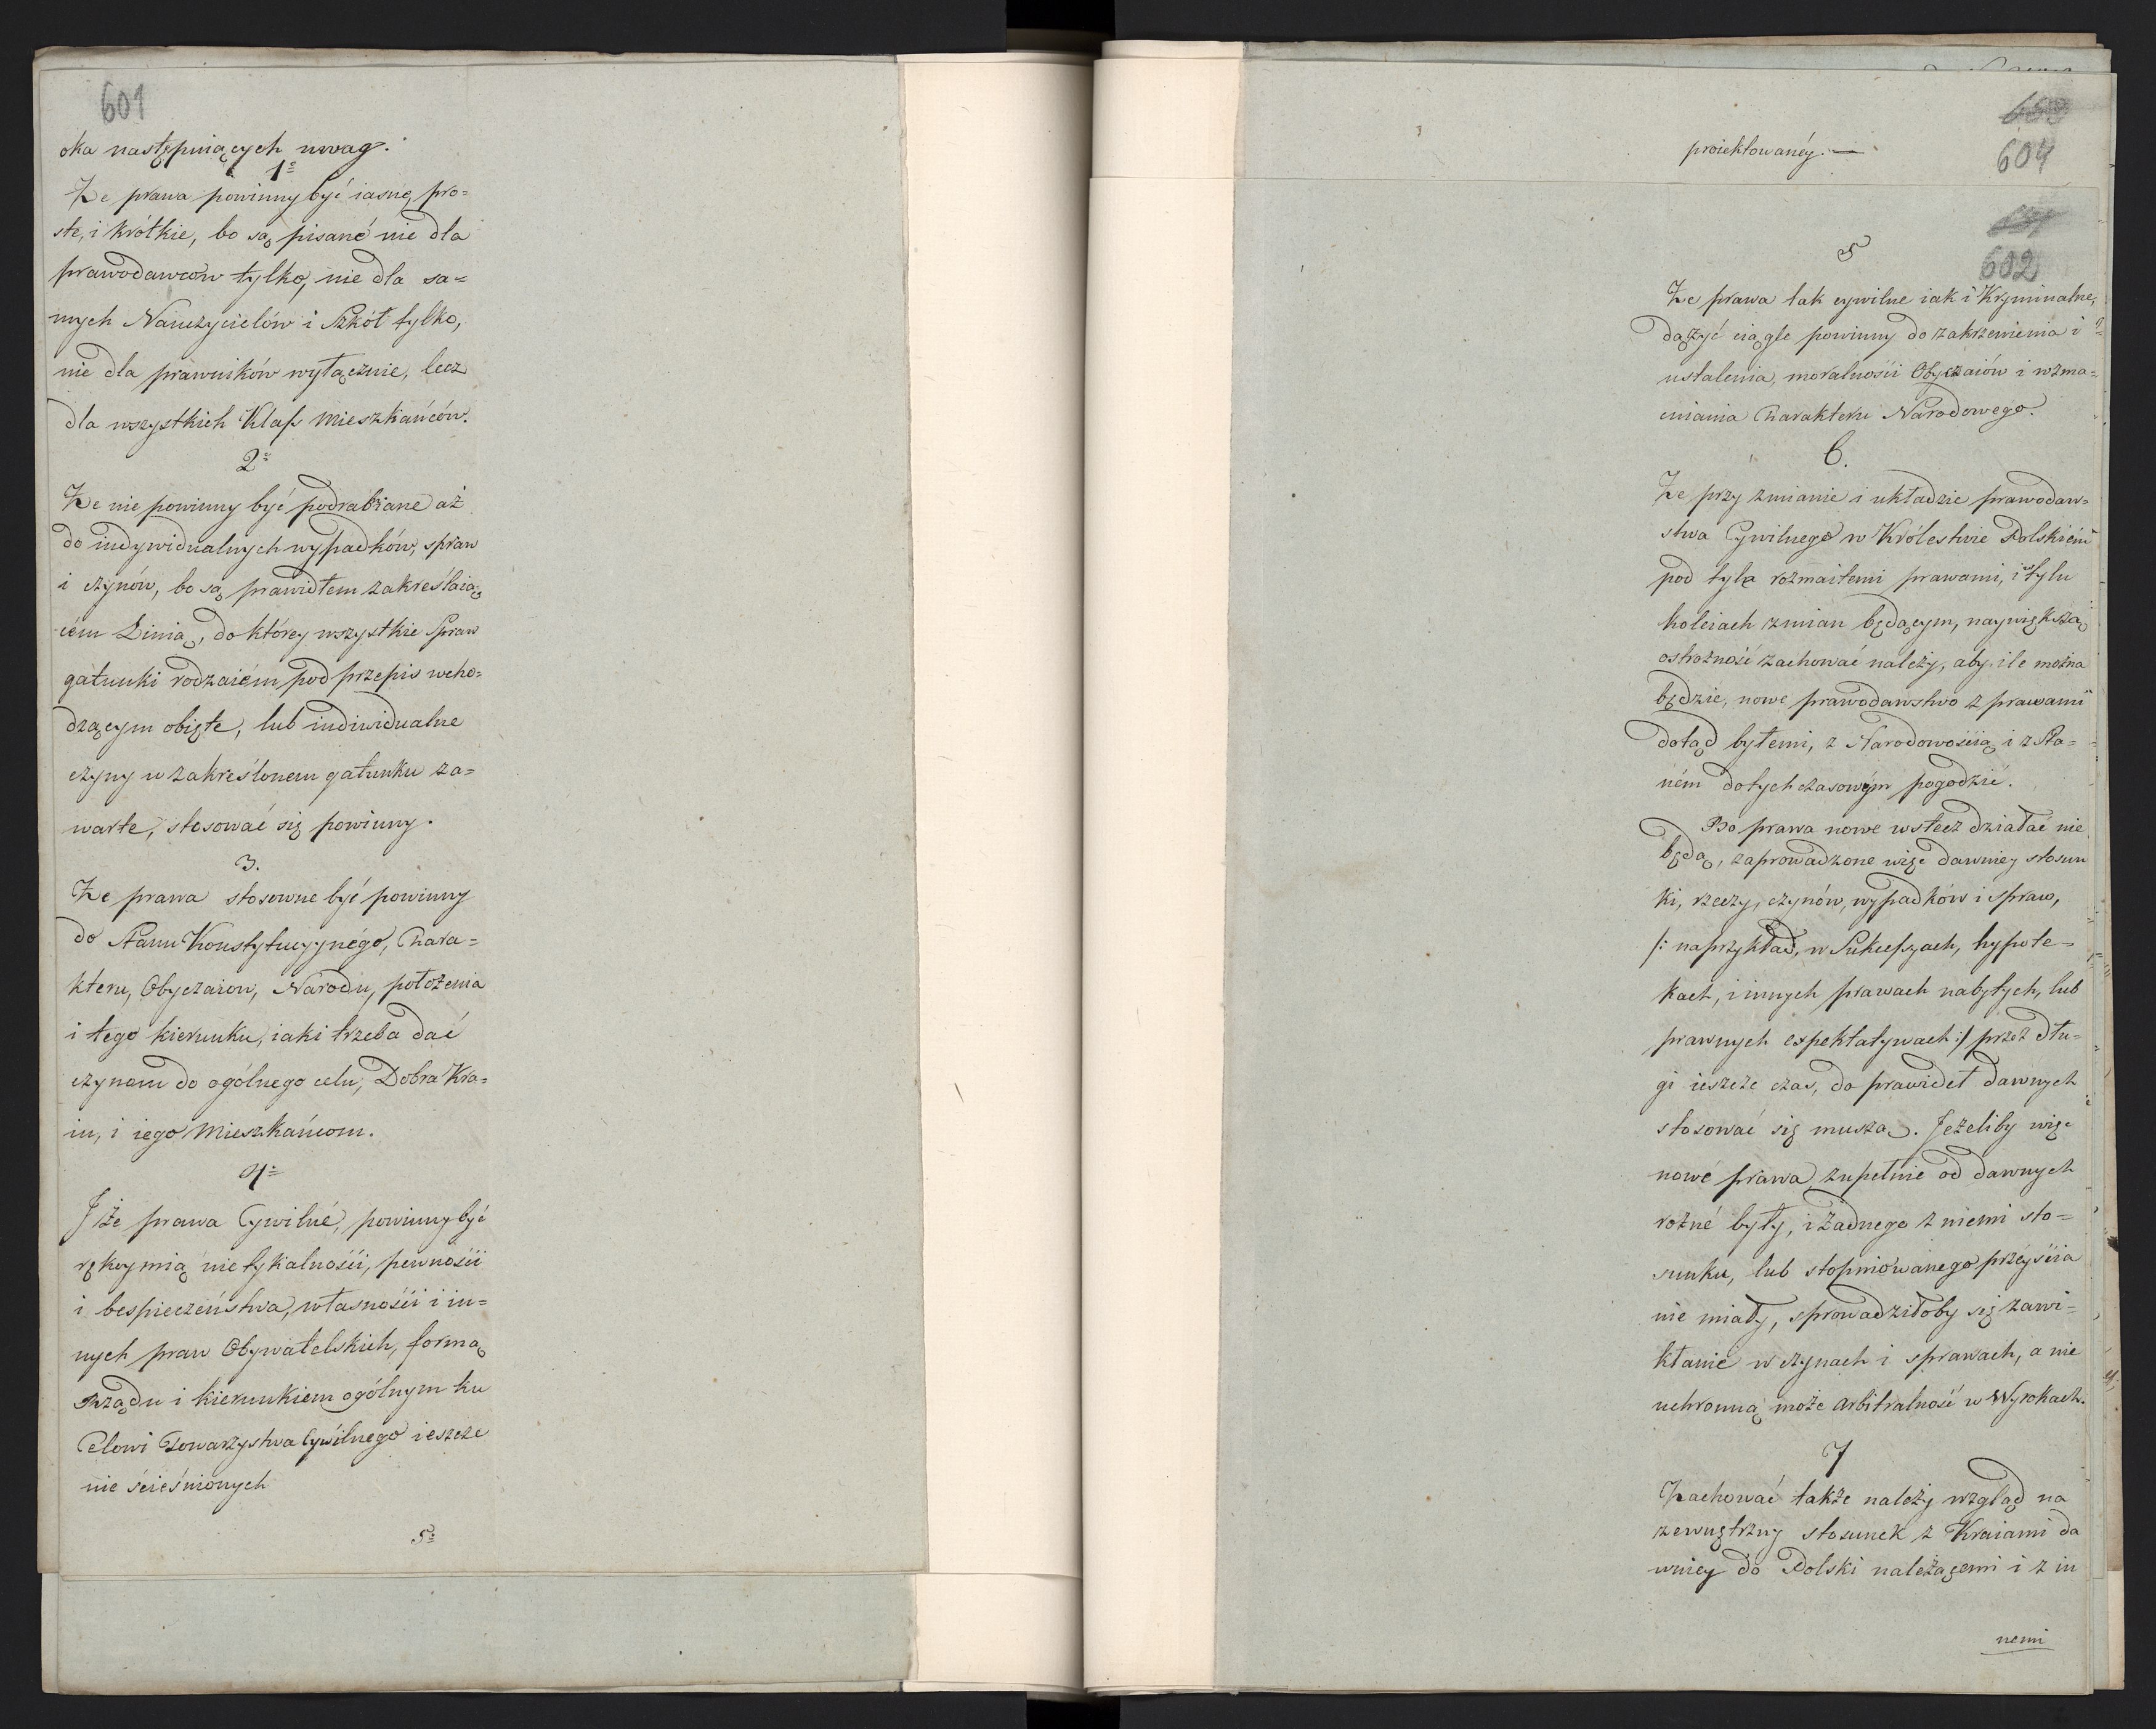 601
oka następuiących uwag.
1e
Że prawa powinny być iasne, pro=
ste, i krótkie, bo są pisané nie dla
prawodawców tylko, nie dla sa=
mych Nauczycielów i Szkół tylko,
nie dla prawników wyłącznie, lecz
dla wszystkich Klass Mieszkańców.
2e
Że nie powinny być podrabiane aż
do indywidualnych wypadków, spraw
i czynów, bo są prawidłem zakreślaią=
cém Linią, do którey wszystkie Spraw
gatunki rodzaiém pod przepis wcho=
dzącym obięte, lub indiwidualne
czyny w zakreślonem gatunku za=
warte, stosować się powinny.
3.
Że prawa stosowne być powinny
do Stanu Konstytucyynégo, Chara=
kteru, Obyczaiow, Narodu, położenia
i tego kierunku, iaki trzeba dać
czynom do ogólnego celu, Dobra Kra=
iu, i iego Mieszkańcom.
4e
Iże prawa Cywilné, powinny być
rękoymią nietykalności, pewności
i bespieczeństwa, własności i in=
nych praw Obywatelskich, formą
Rządu i kierunkiem ogólnym ku
Celowi Towarzystwa Cywilnego ieszcze
nie ścieśnionych
5e
proiektowanéy. —
604
5
602
Że prawa tak cywilne iak i Kryminalne,
dążyć ciągle powinny do zakrzewienia i
ustalenia, moralności Obyczaiów i wzma=
cniania Charakteru Narodowego.
6.
Że przy zmianie i układzie prawodaw=
stwa Cywilnego w Królestwie Polskiém
pod tylą rozmaitemi prawami, i tylu
koleiach zmian będącym, naywiększą
ostrożność zachować należy, aby ile można
będzie, nowe prawodawstwo z prawami
dotąd byłemi, z Narodowością i z Sta=
ném dotychczasowym pogodzić.
Bo prawa nowe wstecz działać nie
będą, zaprowadzone więc dawniey stosun
ki, rzeczy, czynów, wypadków i spraw,
/: naprzykład, w Sukcessyach, hypote=
kach, i innych prawach nabytych, lub
prawnych expektatywach :/ przez dłu=
gi ieszcze czas, do prawideł dawnych
stosować się muszą. Jeżeliby więc
nowé prawa zupełnie od dawnych
rożné były, i żadnego z niemi sto=
sunku, lub stopniowanego przéyścia
nie miały, sprowadziłoby się zawi=
kłanie w czynach i sprawach, a nie
uchronną może arbitralność w Wyrokach.
7
Zachować także należy wzgląd na
zewnętrzny stosunek z Kraiami da
wniey do Polski należącemi i z in
nemi